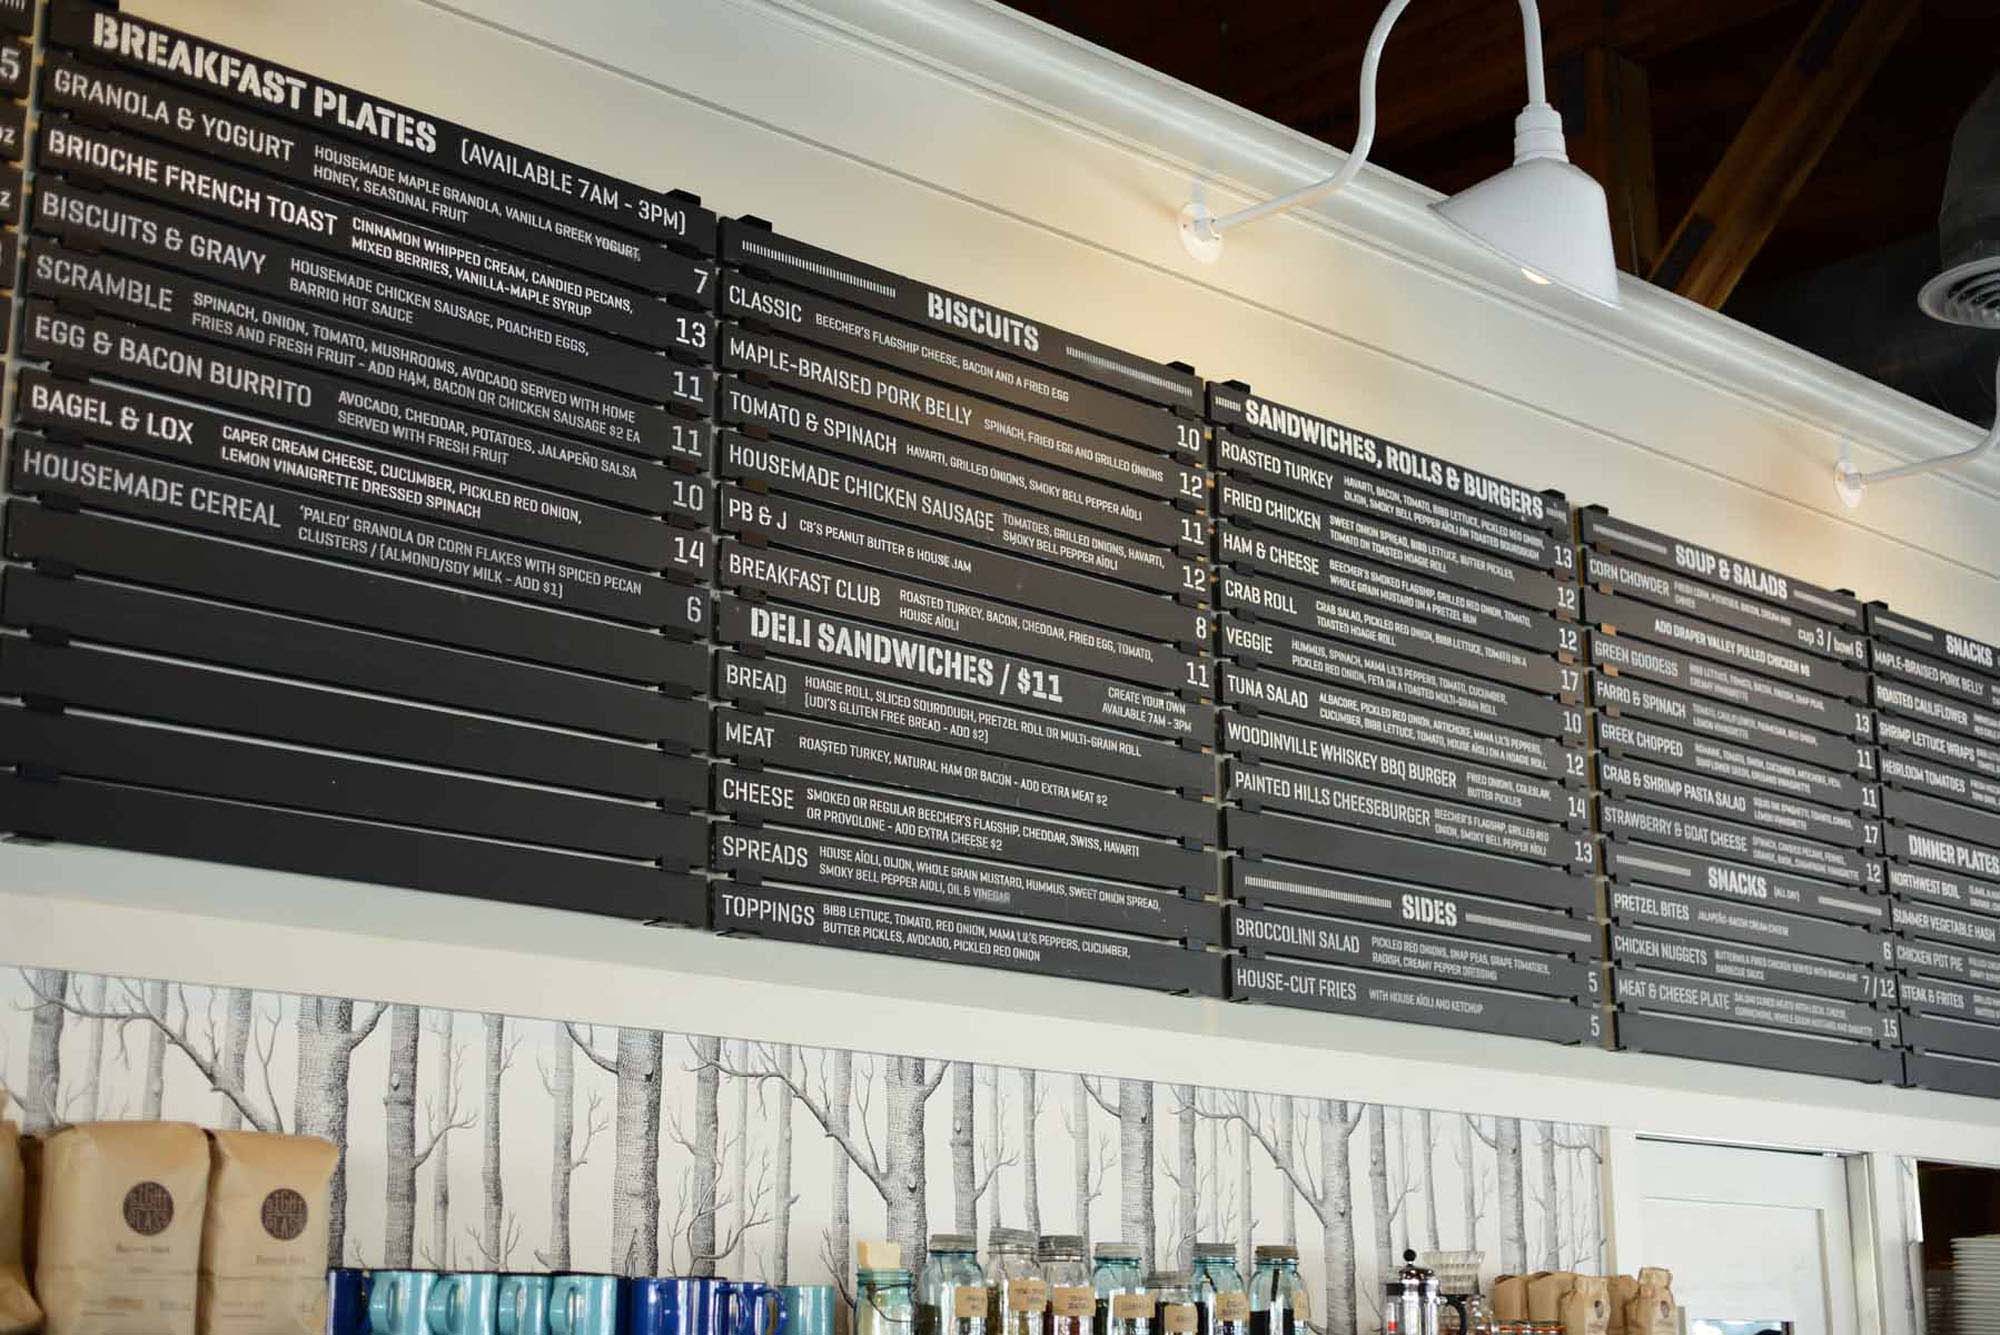 5
BREAKFAST PLATES (AVAILABLE 7AM - 3PM)
GRANOLA & YOGURT HOUSEMADE MAPLE GRANOLA, VANILLA GREEK YOGURT,
HONEY, SEASONAL FRUIT 7
BRIOCHE FRENCH TOAST CINNAMON WHIPPED CREAM, CANDIED PECANS,
MIXED BERRIES, VANILLA-MAPLE SYRUP 13
BISCUITS & GRAVY HOUSEMADE CHICKEN SAUSAGE, POACHED EGGS,
BARRIO HOT SAUCE 11
SCRAMBLE SPINACH, ONION, TOMATO, MUSHROOMS, AVOCADO SERVED WITH HOME
FRIES AND FRESH FRUIT - ADD HAM, BACON OR CHICKEN SAUSAGE $2 EA 11
EGG & BACON BURRITO AVOCADO, CHEDDAR, POTATOES, JALAPEÑO SALSA
SERVED WITH FRESH FRUIT 10
BAGEL & LOX CAPER CREAM CHEESE, CUCUMBER, PICKLED RED ONION,
LEMON VINAIGRETTE DRESSED SPINACH 14
HOUSEMADE CEREAL 'PALEO' GRANOLA OR CORN FLAKES WITH SPICED PECAN
CLUSTERS / (ALMOND/SOY MILK - ADD $1) 6
BISCUITS
CLASSIC BEECHER'S FLAGSHIP CHEESE, BACON AND A FRIED EGG 10
MAPLE-BRAISED PORK BELLY SPINACH, FRIED EGG AND GRILLED ONIONS 12
TOMATO & SPINACH HAVARTI, GRILLED ONIONS, SMOKY BELL PEPPER AÏOLI 11
HOUSEMADE CHICKEN SAUSAGE TOMATOES, GRILLED ONIONS, HAVARTI,
SMOKY BELL PEPPER AÏOLI 12
PB & J CB'S PEANUT BUTTER & HOUSE JAM 8
BREAKFAST CLUB ROASTED TURKEY, BACON, CHEDDAR, FRIED EGG, TOMATO,
HOUSE AÏOLI 11
DELI SANDWICHES / $11 CREATE YOUR OWN
AVAILABLE 7AM - 3PM
BREAD HOAGIE ROLL, SLICED SOURDOUGH, PRETZEL ROLL OR MULTI-GRAIN ROLL
(UDI'S GLUTEN FREE BREAD - ADD $2)
MEAT ROASTED TURKEY, NATURAL HAM OR BACON - ADD EXTRA MEAT $2
CHEESE SMOKED OR REGULAR BEECHER'S FLAGSHIP, CHEDDAR, SWISS, HAVARTI
OR PROVOLONE - ADD EXTRA CHEESE $2
SPREADS HOUSE AÏOLI, DIJON, WHOLE GRAIN MUSTARD, HUMMUS, SWEET ONION SPREAD,
SMOKY BELL PEPPER AIOLI, OIL & VINEGAR
TOPPINGS BIBB LETTUCE, TOMATO, RED ONION, MAMA LIL'S PEPPERS, CUCUMBER,
BUTTER PICKLES, AVOCADO, PICKLED RED ONION
SANDWICHES, ROLLS & BURGERS
ROASTED TURKEY HAVARTI, BACON, TOMATO, BIBB LETTUCE, PICKLED RED ONION,
DIJON, SMOKY BELL PEPPER AÏOLI ON TOASTED SOURDOUGH 13
FRIED CHICKEN SWEET ONION SPREAD, BIBB LETTUCE, BUTTER PICKLES,
TOMATO ON TOASTED HOAGIE ROLL 12
HAM & CHEESE BEECHER'S SMOKED FLAGSHIP, GRILLED RED ONION, TOMATO,
WHOLE GRAIN MUSTARD ON A PRETZEL BUN 12
CRAB ROLL CRAB SALAD, PICKLED RED ONION, BIBB LETTUCE, TOMATO ON A
TOASTED HOAGIE ROLL 17
VEGGIE HUMMUS, SPINACH, MAMA LIL'S PEPPERS, TOMATO, CUCUMBER,
PICKLED RED ONION, FETA ON A TOASTED MULTI-GRAIN ROLL 10
TUNA SALAD ALBACORE, PICKLED RED ONION, ARTICHOKE, MAMA LIL'S PEPPERS,
CUCUMBER, BIBB LETTUCE, TOMATO, HOUSE AÏOLI ON A HOAGIE ROLL 12
WOODINVILLE WHISKEY BBQ BURGER FRIED ONIONS, COLESLAW,
BUTTER PICKLES 14
PAINTED HILLS CHEESEBURGER BEECHER'S FLAGSHIP, GRILLED RED
ONION, SMOKY BELL PEPPER AÏOLI 13
SIDES
BROCCOLINI SALAD PICKLED RED ONIONS, SNAP PEAS, GRAPE TOMATOES,
RADISH, CREAMY PEPPER DRESSING 5
HOUSE-CUT FRIES WITH HOUSE AÏOLI AND KETCHUP 5
SOUP & SALADS
CORN CHOWDER FRESH CORN, POTATOES, BACON, CREAM AND
CHIVES cup 3 / bowl 6
ADD DRAPER VALLEY PULLED CHICKEN
GREEN GODDESS 13
FARRO & SPINACH 11
GREEK CHOPPED 11
CRAB & SHRIMP PASTA SALAD 17
STRAWBERRY & GOAT CHEESE 12
SNACKS (ALL DAY)
PRETZEL BITES JALAPEÑO-BACON CREAM CHEESE 6
CHICKEN NUGGETS BUTTERMILK FRIED CHICKEN SERVED WITH RANCH AND
BARBECUE SAUCE 7 / 12
MEAT & CHEESE PLATE 15
SNACKS
MAPLE-BRAISED PORK BELLY
ROASTED CAULIFLOWER
SHRIMP LETTUCE WRAPS
HEIRLOOM TOMATOES
DINNER PLATES
NORTHWEST BOIL
SUMMER VEGETABLE HASH
CHICKEN POT PIE
STEAK & FRITES